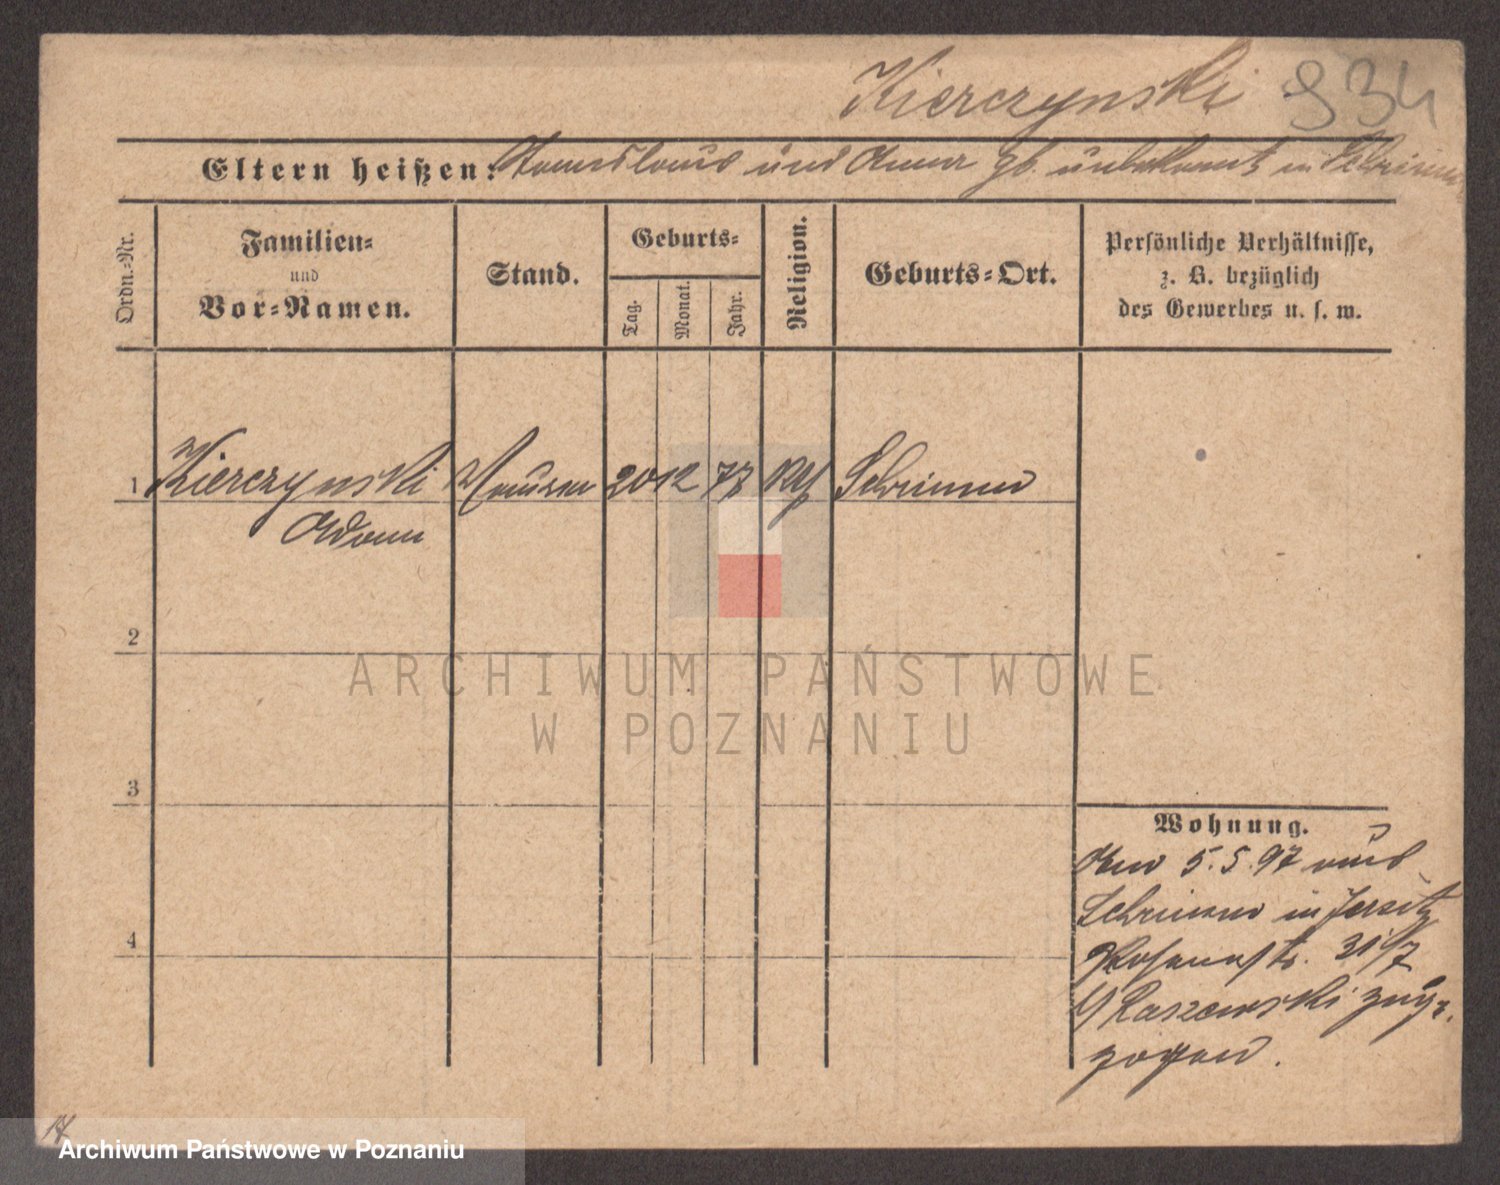 Kierczynski 934
Eltern heißen: Stanislaus und Anna gb. unbekannt in Schrimm
Ordn.-Nr.
Familien-
und
Vor-Namen.
Stand.
Geburts-
Tag.
Monat.
Jahr.
Religion.
Geburts-Ort.
Persönliche Verhältnisse,
z. B. bezüglich
des Gewerbes u. s. w.
1 Kierczynski Maurer 20 12 77 Schrimm
Adam
2
3
4
Wohnung.
Am 5.5.97 aus
Schrimm in Jersitz
31/7
Kaszewski
zogen.
ARCHIWUM PAŃSTWOWE
W POZNANIU
Archiwum Państwowe w Poznaniu